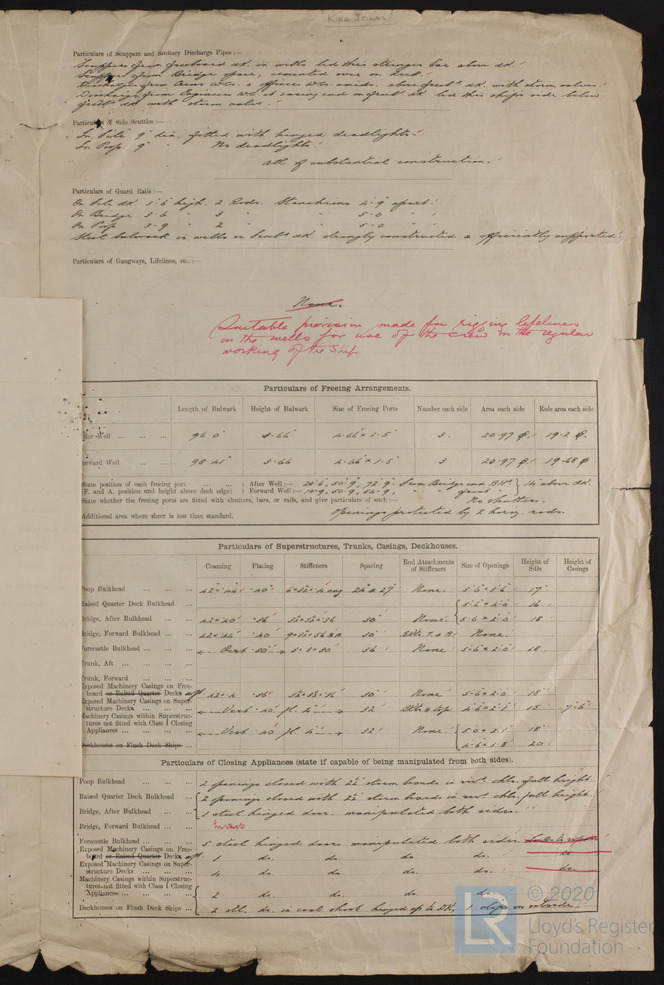 KING IDWAL
Particulars of Scuppers and Sanitary Discharge Pipes:—
Scuppers from freeboard dk. in wells led thro stringer bar above dk.
Scuppers from Bridge space, cemented over on deck.
Discharges from Crews W.Cs. & officers W.Cs above freebd dk. with storm valves.
Discharge from Engineers W.C. casing on freebd dk. led thro ship's side below
freebd dk. with storm valve.
Particulars of Side Scuttles:—
In Fcle 9" dia. fitted with hinged deadlights.
In Poop 9" " No deadlights.
All of substantial construction.
Particulars of Guard Rails:—
On Fcle dk. 3'-6" high. 2 Rods. Stanchions 4'-9" apart.
On Bridge 3-6 " 3 " " 5-0 "
On Poop 3-9 " 2 " " 5-0 "
Steel bulwark in wells on freebd dk. strongly constructed & efficiently supported.
Particulars of Gangways, Lifelines, etc.:—
None.
Suitable provision made for rigging lifelines
in the wells for use of the crew in the regular
working of the ship
Particulars of Freeing Arrangements.
Length of Bulwark Height of Bulwark Size of Freeing Ports Number each side Area each side Rule area each side
After Well ... ... ... 96.0' 3.66' 4.66' x 1.5' 3. 20.97 19.2
Forward Well ... ... 98.41' 3.66 4.66' x 1.5' 3 20.97 19.68
State position of each freeing port ... ... After Well:— 20'6, 50'9, 72'9" From Bridge end Bhd
(F. and A. position and height above deck edge) Forward Well:— 10'9, 50'9, 84'9 " " front 14" above dk.
State whether the freeing ports are fitted with shutters, bars, or rails, and give particulars of such:— No shutters.
Additional area where sheer is less than standard. Openings protected by 2 horiz. rods.
Particulars of Superstructures, Trunks, Casings, Deckhouses.
Coaming Plating Stiffeners Spacing End Attachments of Stiffeners Size of Openings Height of Sills Height of Casings
Poop Bulkhead ... ... ... .40" None. 5'6" x 5'6" 17"
Raised Quarter Deck Bulkhead ... 5'6" x 4'0" 16
Bridge, After Bulkhead ... ... .36" 30" None. 5'6" x 2'0" 18
Bridge, Forward Bulkhead ... ... .40 30" Bkts. T. & B. None.
Forecastle Bulkhead ... ... ... Vert. .30" 36 None 5'6" x 2'0" 18
Trunk, Aft ... ... ...
Trunk, Forward ... ... ...
Exposed Machinery Casings on Freeboard or Raised Quarter Decks aft .36" 30" None 5'6" x 2'0" 18"
Exposed Machinery Casings on Superstructure Decks ... ... Vert. .40 32" Bkts @ top 4'6" x 2'2" 15 7'6"
Machinery Casings within Superstructures not fitted with Class I Closing Appliances ... ... Vert. .40 32" None. 5'0" x 2'1" 18"
Deckhouses on Flush Deck Ships ... 4'6" x 1'8" 20"
Particulars of Closing Appliances (state if capable of being manipulated from both sides).
Poop Bulkhead ... ... ... 2 openings closed with 2½" storm boards in rivd. chls. full height.
Raised Quarter Deck Bulkhead ... 2 openings closed with 2½" storm boards in rivd. chls. full height.
Bridge, After Bulkhead ... ... 1 steel hinged door. manipulated both sides.
Bridge, Forward Bulkhead ... Intact
Forecastle Bulkhead ... ... 5 steel hinged doors manipulated both sides.
Exposed Machinery Casings on Freeboard or Raised Quarter Decks aft 1 do. do. do. do. do.
Exposed Machinery Casings on Superstructure Decks ... 4 do. do. do. do. do.
Machinery Casings within Superstructures not fitted with Class I Closing Appliances ... 2 do. do. do. do.
Deckhouses on Flush Deck Ships ... 2 stl. do. in coal shoot hinged up to dk.
© 2020
LR
Lloyd's Register
Foundation